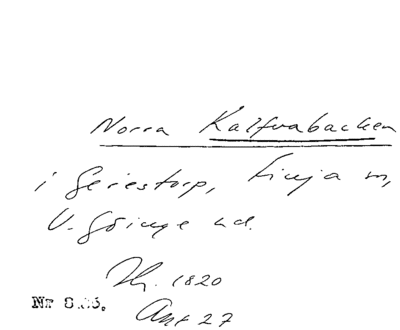 Norra Kalfvabacken
i Geiestorp, Finja sn,
V. Göinge hd.
1820
Nr 8.
Akt 27